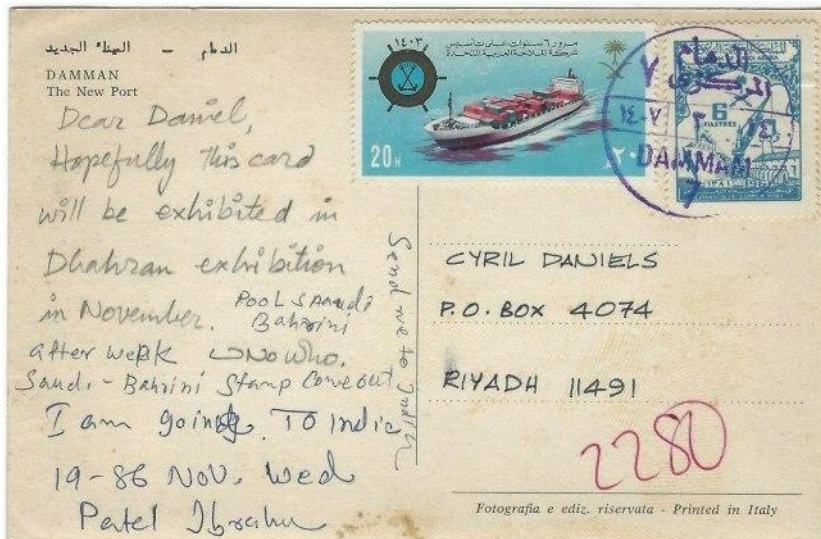 الدمام – الميناء الجديد
DAMMAN
The New Port
Dear Daniel,
Hopefully This card
will be exhibited in
Dhahran exhibition
in November.
POOL Saaudi
Bahrini
after week
Saudi - Bahrini Stamp Come out
I am going TO India
19-86 NOV. Wed
Patel Ibrahim
Send me to India
١٤٠٣
مرور ٦ سنوات على تأسيس
شركة الملاحة العربية المتحدة
20 H
٢٠
الدمام
المركزي
٧
١٤٠٧ ٣
DAMMAM
7
6
PIASTRES
CYRIL DANIELS
P.O. BOX 4074
RIYADH 11491
2280
Fotografia e ediz. riservata - Printed in Italy